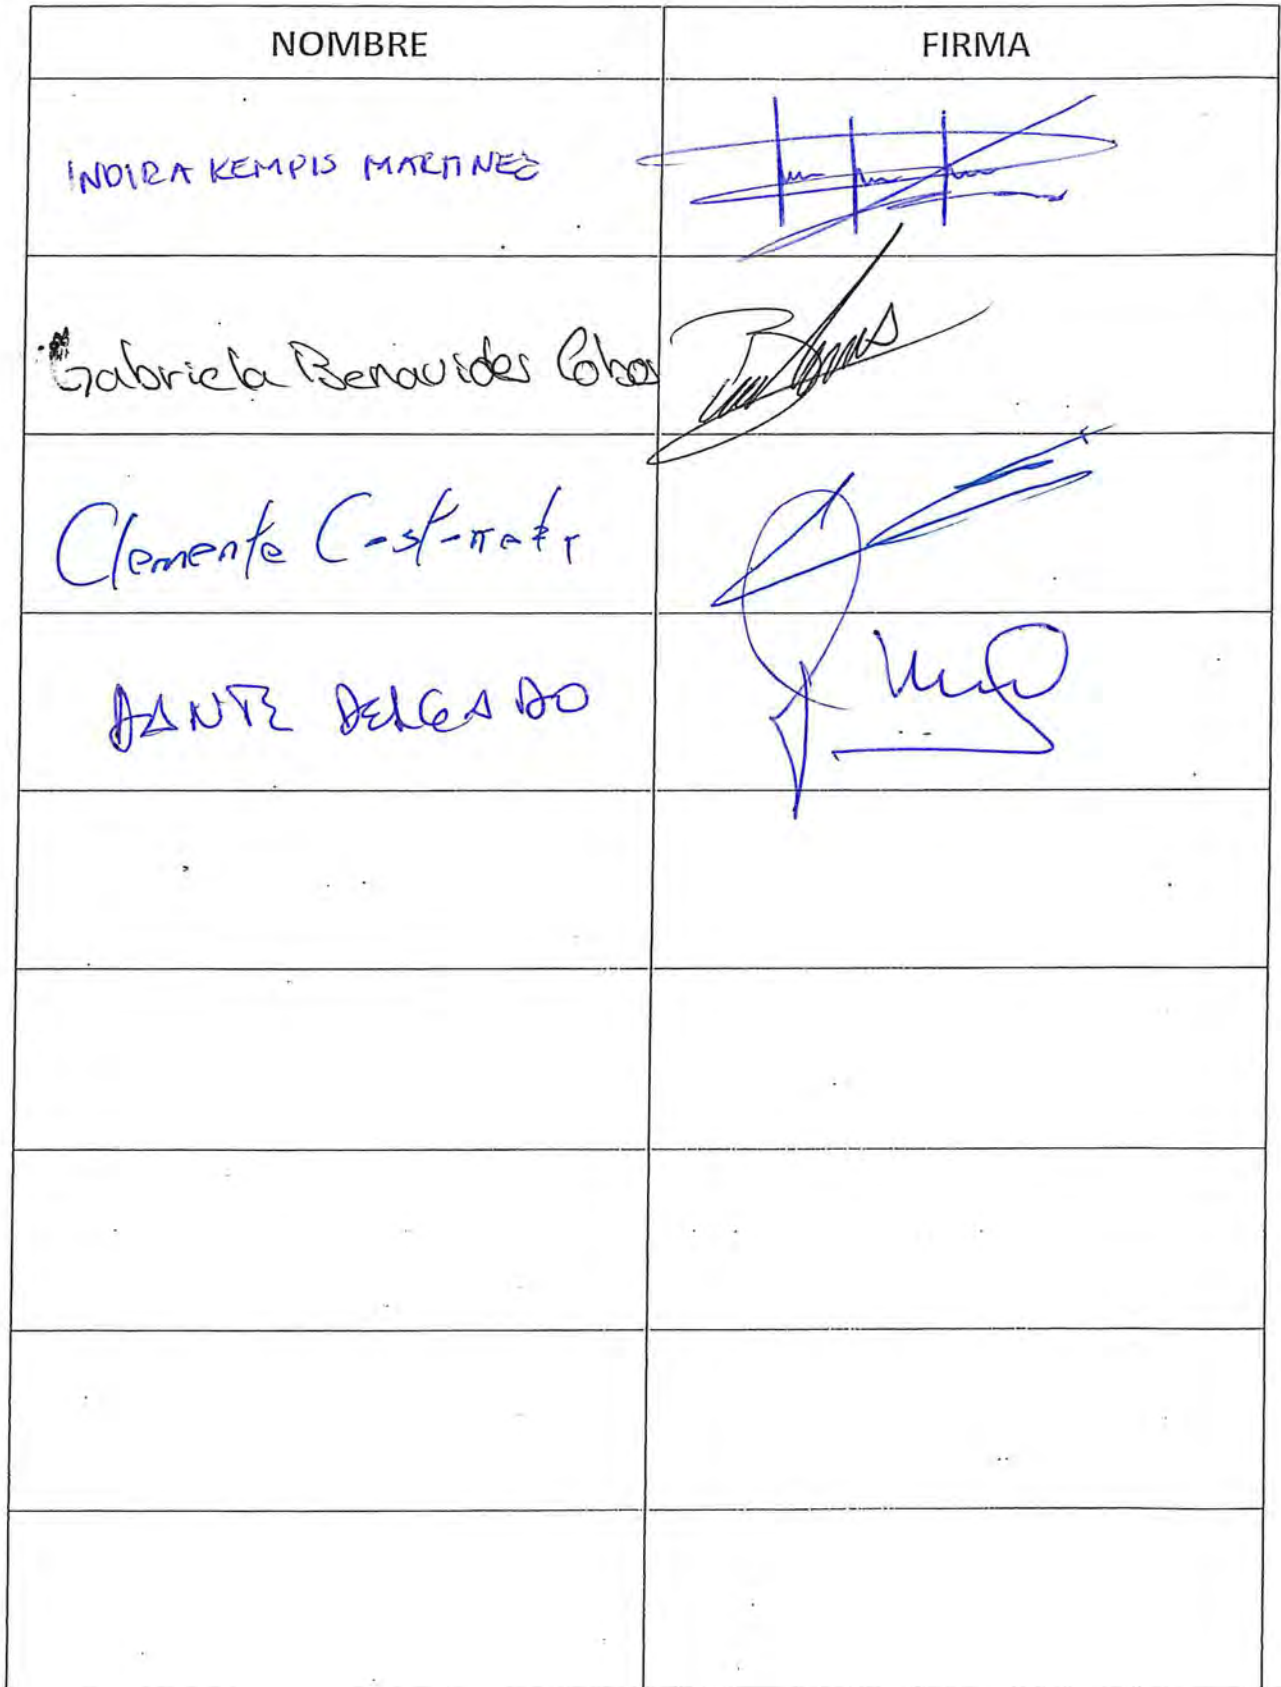 NOMBRE FIRMA
INDIRA KEMPIS MARTINEZ
Gabriela Benavides Cobos
Clemente
DANTE DELGADO